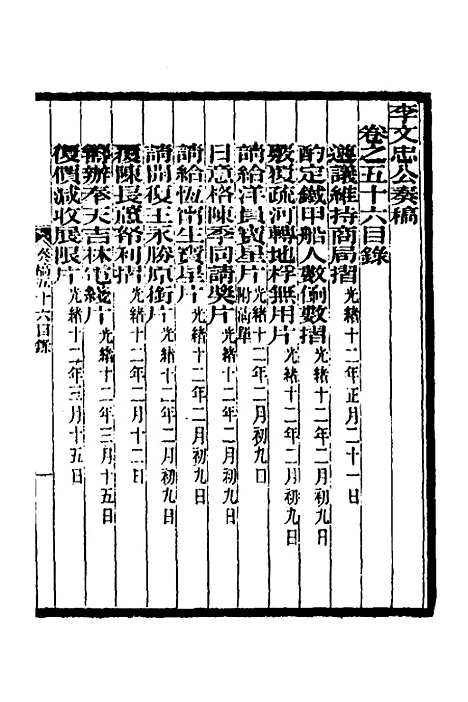 李文忠公奏稿
卷之五十六目錄
遵議維持商局摺 光緒十二年正月二十一日
酌定鐵甲船人數餉數摺 光緒十二年二月初九日
覆疏河轉地桴無用片 光緒十二年二月初九日
請給洋員寶星片 附清單 光緒十二年二月初九日
日意格陳季同請獎片 光緒十二年二月初九日
請給恆甯生寶星片 光緒十二年二月初九日
請開復王永勝原銜片 光緒十二年二月初九日
覆陳長蘆帑利摺 光緒十二年二月十二日
辦奉天吉林電綫片 光緒十二年三月十五日
復價減收展限片 光緒十二年三月十五日
奏稿五十六目錄
一